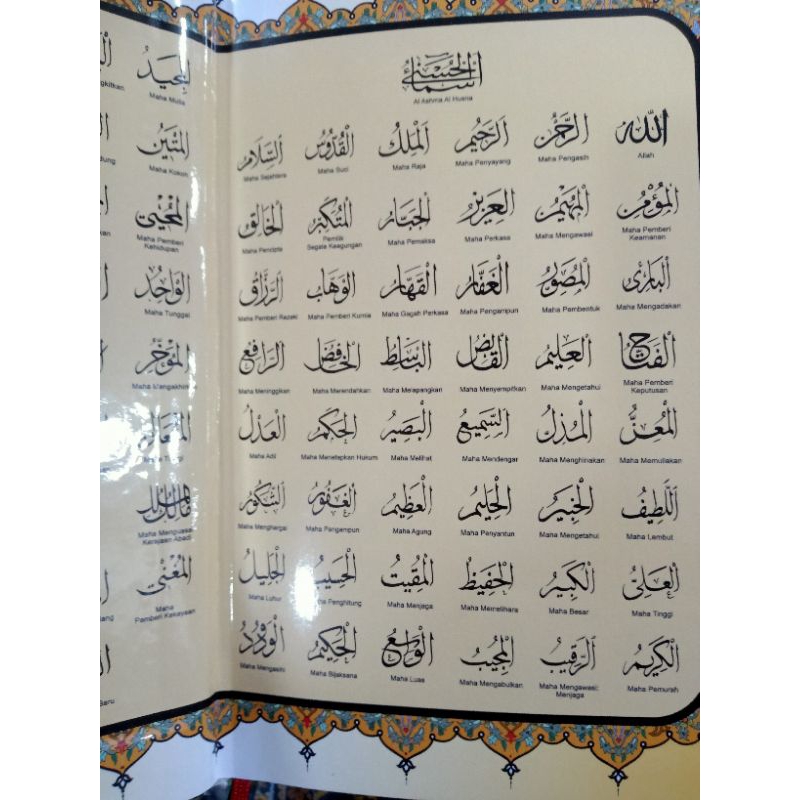 أسماء الحسنى
Al Ashma Al Husna
الله
Allah
الرحمن
Maha Pengasih
الرحيم
Maha Penyayang
الملك
Maha Raja
القدوس
Maha Suci
السلام
Maha Sejahtera
المؤمن
Maha Pemberi
Keamanan
المهيمن
Maha Mengawasi
العزيز
Maha Perkasa
الجبار
Maha Pemaksa
المتكبر
Pemilik
Segala Keagungan
الخالق
Maha Pencipta
البارئ
Maha Mengadakan
المصور
Maha Pembentuk
الغفار
Maha Pengampun
القهار
Maha Gagah Perkasa
الوهاب
Maha Pemberi Kurnia
الرزاق
Maha Pemberi Rezeki
الفتاح
Maha Pemberi
Keputusan
العليم
Maha Mengetahui
القابض
Maha Menyempitkan
الباسط
Maha Melapangkan
الخافض
Maha Merendahkan
الرافع
Maha Meninggikan
المعز
Maha Memuliakan
المذل
Maha Menghinakan
السميع
Maha Mendengar
البصير
Maha Melihat
الحكم
Maha Menetapkan Hukum
العدل
Maha Adil
اللطيف
Maha Lembut
الخبير
Maha Mengetahui
الحليم
Maha Penyantun
العظيم
Maha Agung
الغفور
Maha Pengampun
الشكور
Maha Menghargai
العلي
Maha Tinggi
الكبير
Maha Besar
الحفيظ
Maha Memelihara
المقيت
Maha Menjaga
الحسيب
Maha Penghitung
الجليل
Maha Luhur
الكريم
Maha Pemurah
الرقيب
Maha Mengawasi
Menjaga
المجيب
Maha Mengabulkan
الواسع
Maha Luas
الحكيم
Maha Bijaksana
الودود
Maha Mengasihi
المجيد
Maha Mulia
المتين
Maha Kokoh
المحيي
Maha Pemberi
Kehidupan
الواحد
Maha Tunggal
المؤخر
Maha
المتعالي
مالك الملك
Maha Menguasai
Kerajaan Abadi
المغني
Maha
Pemberi Kekayaan